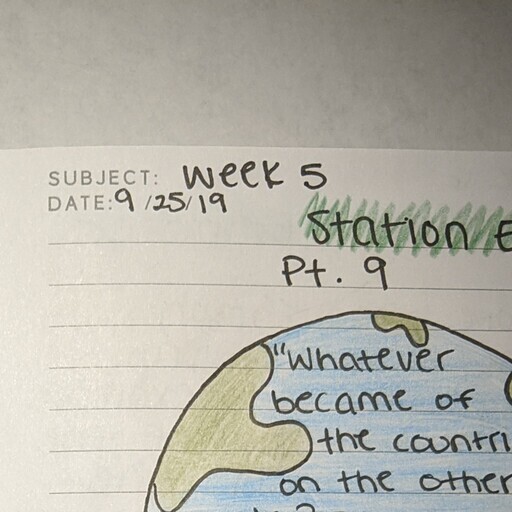 SUBJECT: Week 5
DATE: 9/25/19
Station
Pt. 9
"Whatever
became of
the countri
on the other